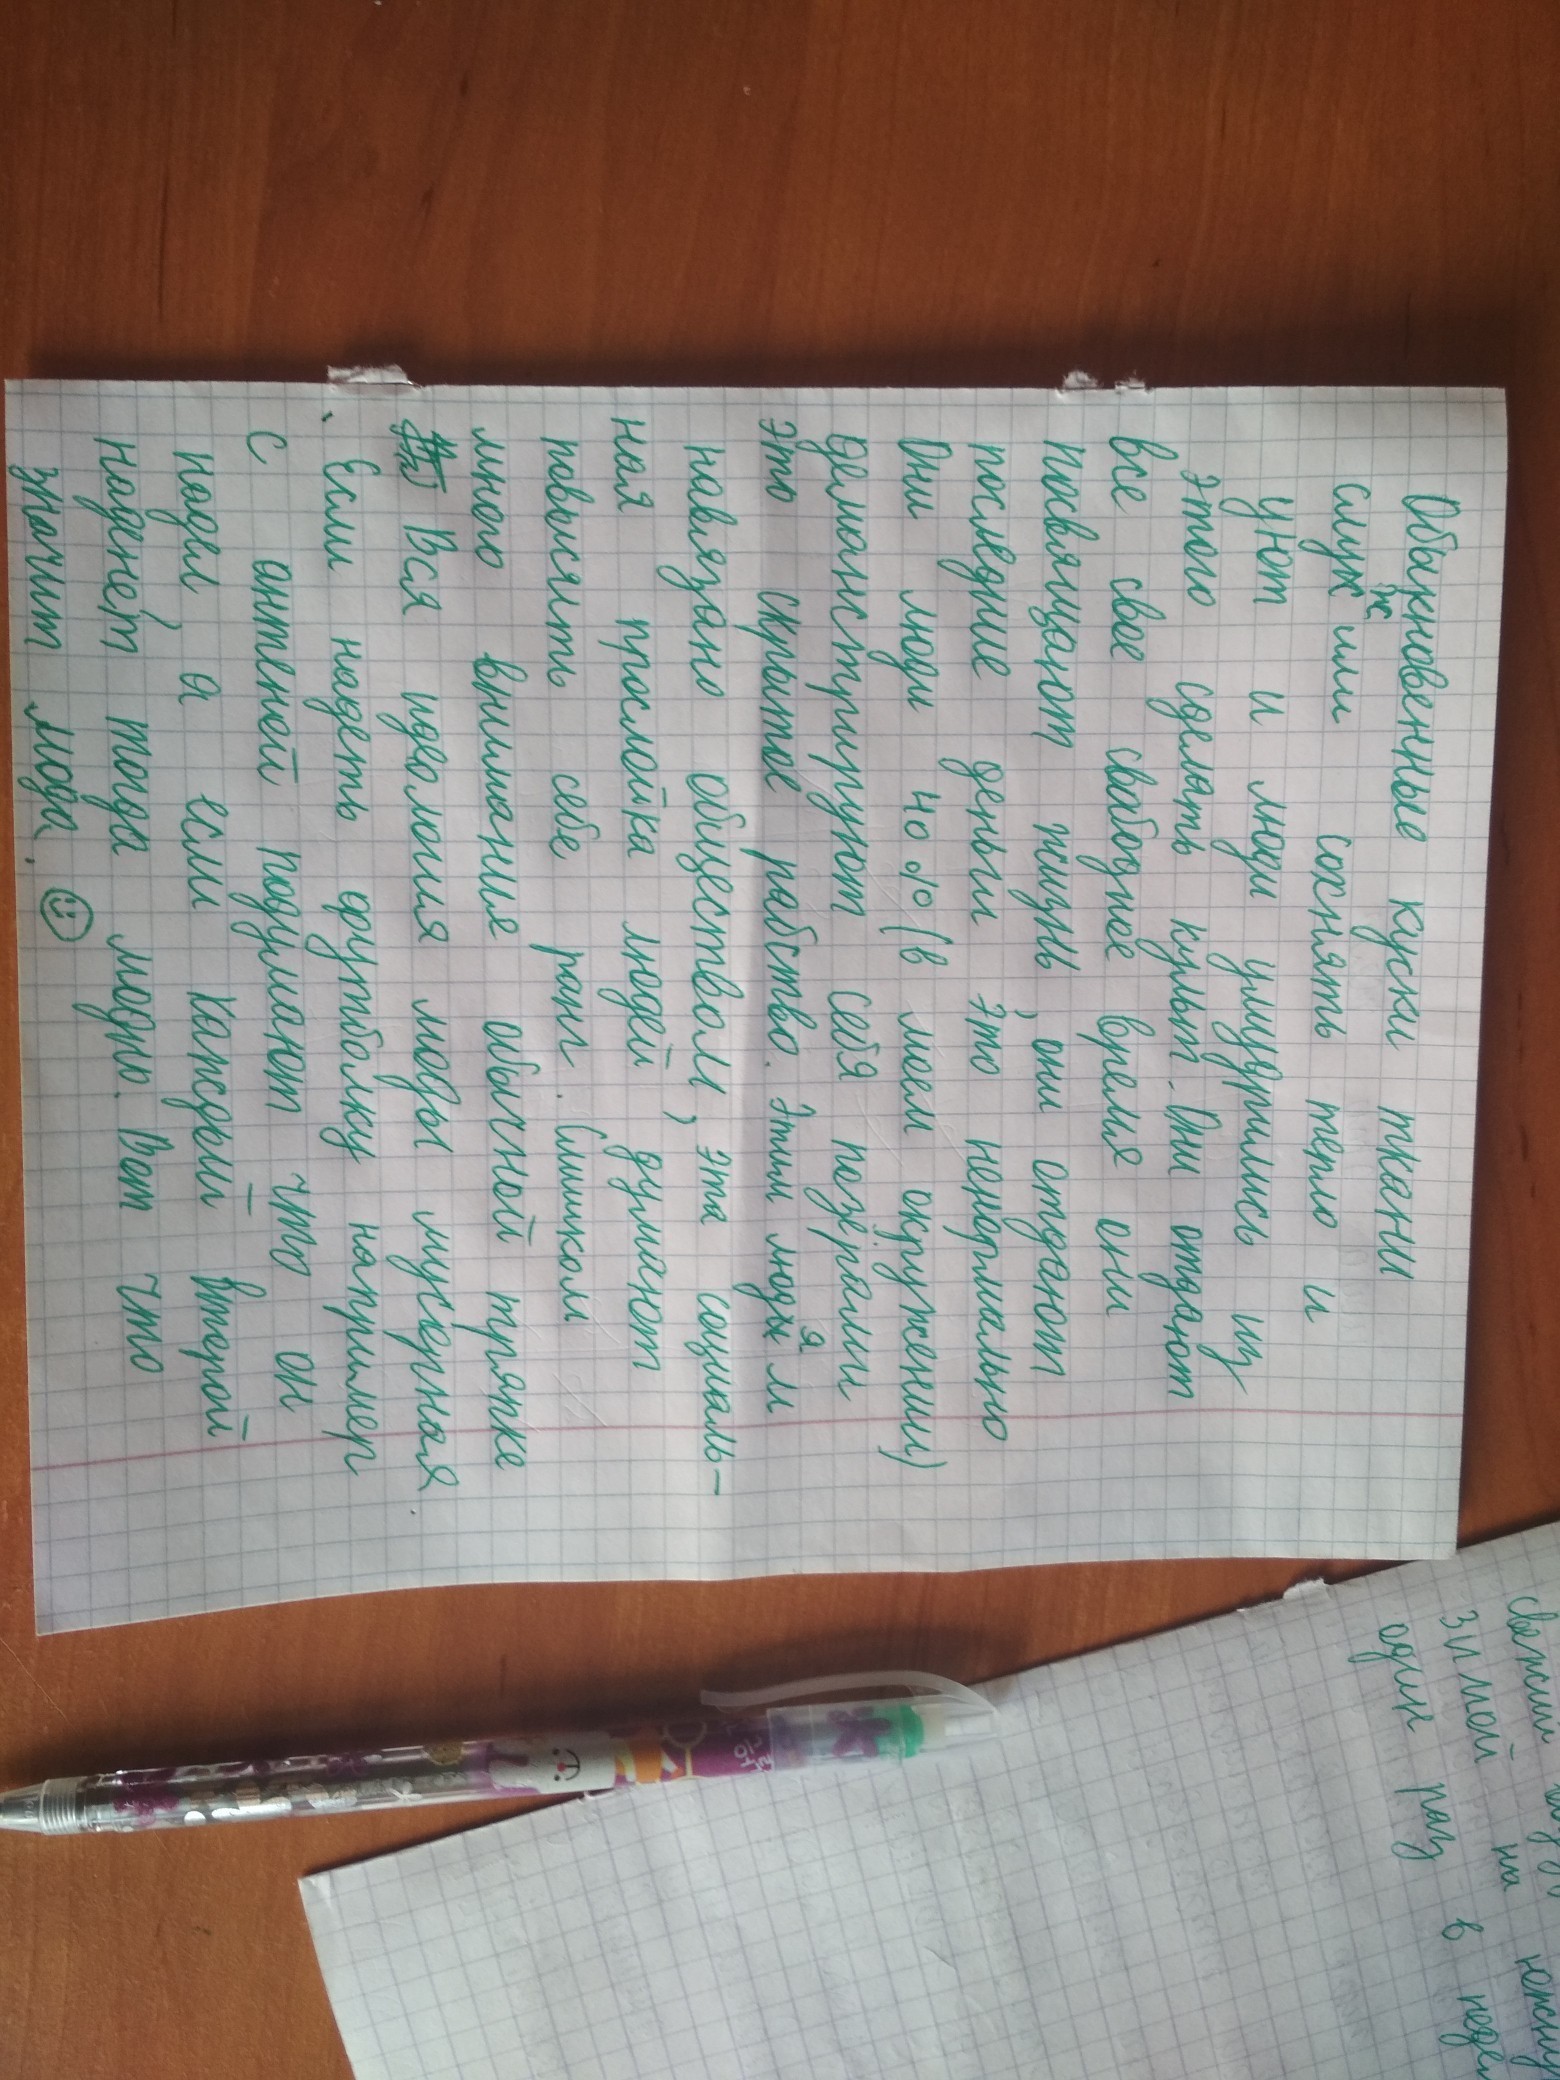 Обыкновенные куски ткани
служили сохнять тепло и
уют и люди умудрились из
этого сделать культ. Они отдают
все свое свободное время они
посвящают жизнь, они отдают
последние деньги это ненормально
Они люди 40% (в моем окружении)
демонстрируют себя позёрами
это скрытое рабство. Этим людям
навязано обществом, эта социаль-
ная прослойка людей думают
повысять себе ранг. Слишком
много внимание обычной тряпке
Вся идеалогия моды мусерная
. Если надеть футболку например
с антеной подумают что он
падел, а если Каждый второй
наденет тогда модно. Вот что
значит мода. ☺
свежий
зимой на
один раз в